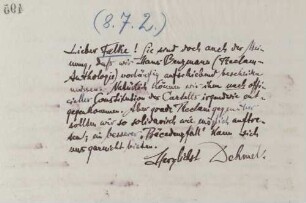 (8.7.2.)
Lieber Falke! Sie sind doch auch der Mei-
nung, daß wir Hans Benzmann (Reclam-
Anthologie) vorläufig aufschiebend bescheiden
müssen. Natürlich können wir ihm nach offi-
cieller Constitution des Cartells irgendwie ent-
gegenkommen. Aber grade Reclam gegenüber
sollten wir so solidarisch wie möglich auftre-
ten; ein besserer "Präcedenzfall" kann sich
uns garnicht bieten.
Herzlichst Dehmel.